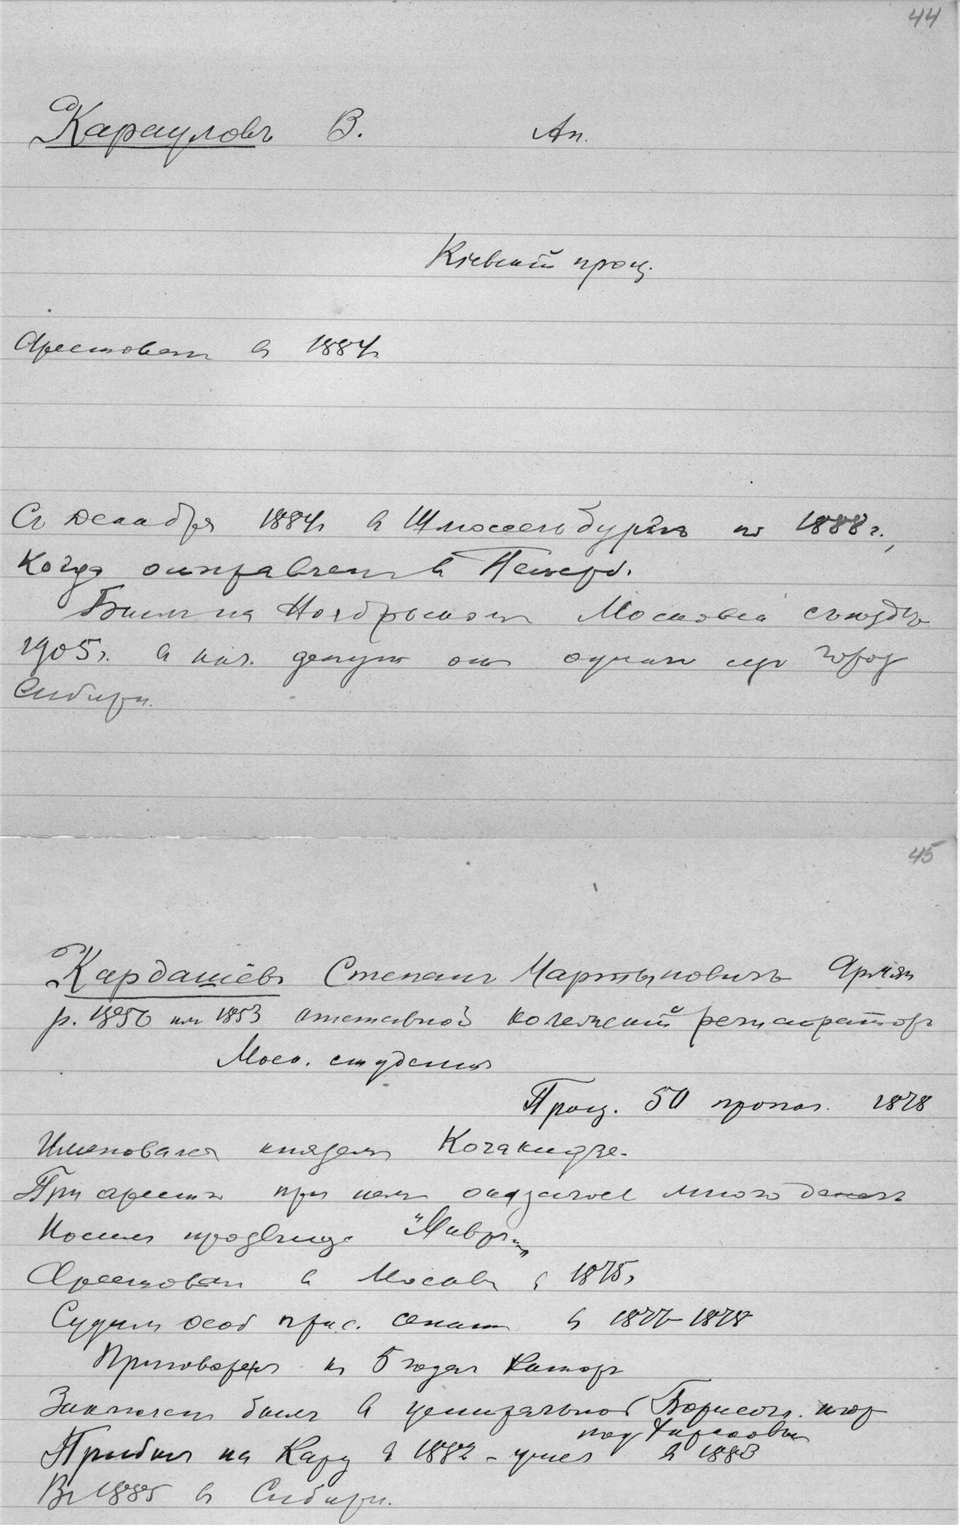 44
Карауловъ В. Ап.
Кіевскій проц.
Арестован в 1884 г
Съ Декабря 1884 г в Шлюссельбургѣ по 1888 г.,
когда отправлен в Петерб.
Был на Ноябрьском Московск съѣздѣ
1905 г. в кач. депут от одного из город
Сибири.
45
Кардашёвъ Степанъ Мартыновичъ Армян
р. 1850 или 1853 отставной коллежскій регистраторъ
Моск. студент
Проц. 50 пропаг. 1878
Именовался князем
При арестѣ при нем оказалось много денег
Носил прозвище
Арестован в Москвѣ в 1875 г
Судим особ прис. сената в 1877-1878
Приговорен к 5 годам каторг
Заключен был в центральной Борисогл. тюр
под Харьковым
Прибыл на Кару в 1882 - ушел в 1883
Въ 1885 в Сибири.